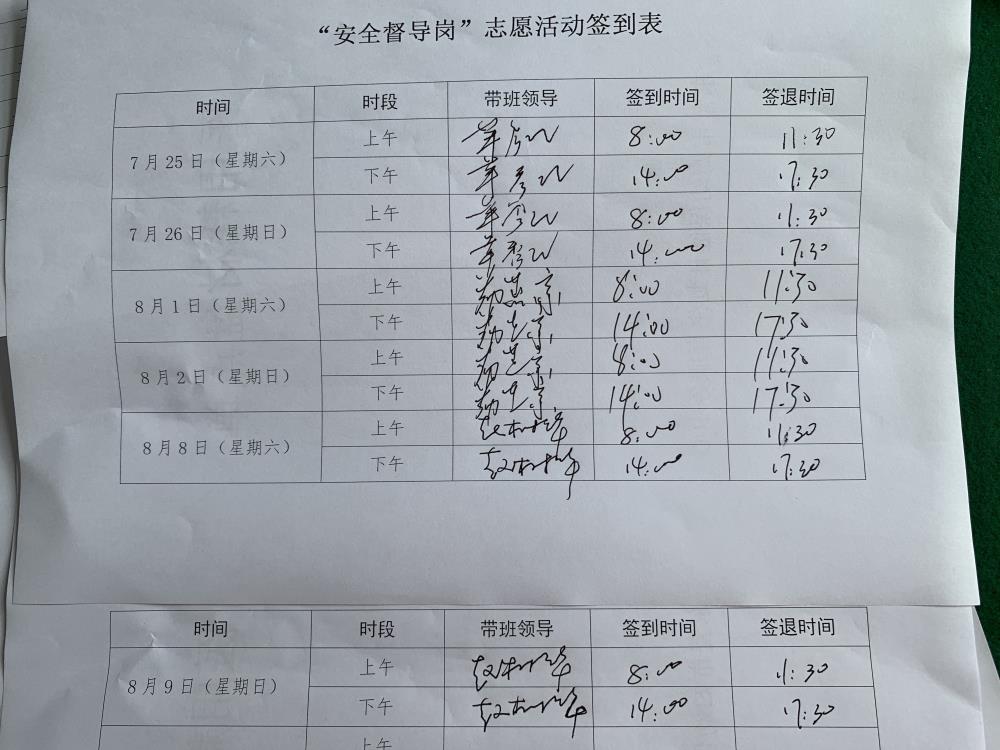 “安全督导岗”志愿活动签到表
时间 时段 带班领导 签到时间 签退时间
7月25日（星期六） 上午 8:00 11:30
下午 14:00 17:30
7月26日（星期日） 上午 8:00 11:30
下午 14:00 17:30
8月1日（星期六） 上午 8:00 11:30
下午 14:00 17:30
8月2日（星期日） 上午 8:00 11:30
下午 14:00 17:30
8月8日（星期六） 上午 8:00 11:30
下午 14:00 17:30
时间 时段 带班领导 签到时间 签退时间
8月9日（星期日） 上午 8:00 11:30
下午 14:00 17:30
上午